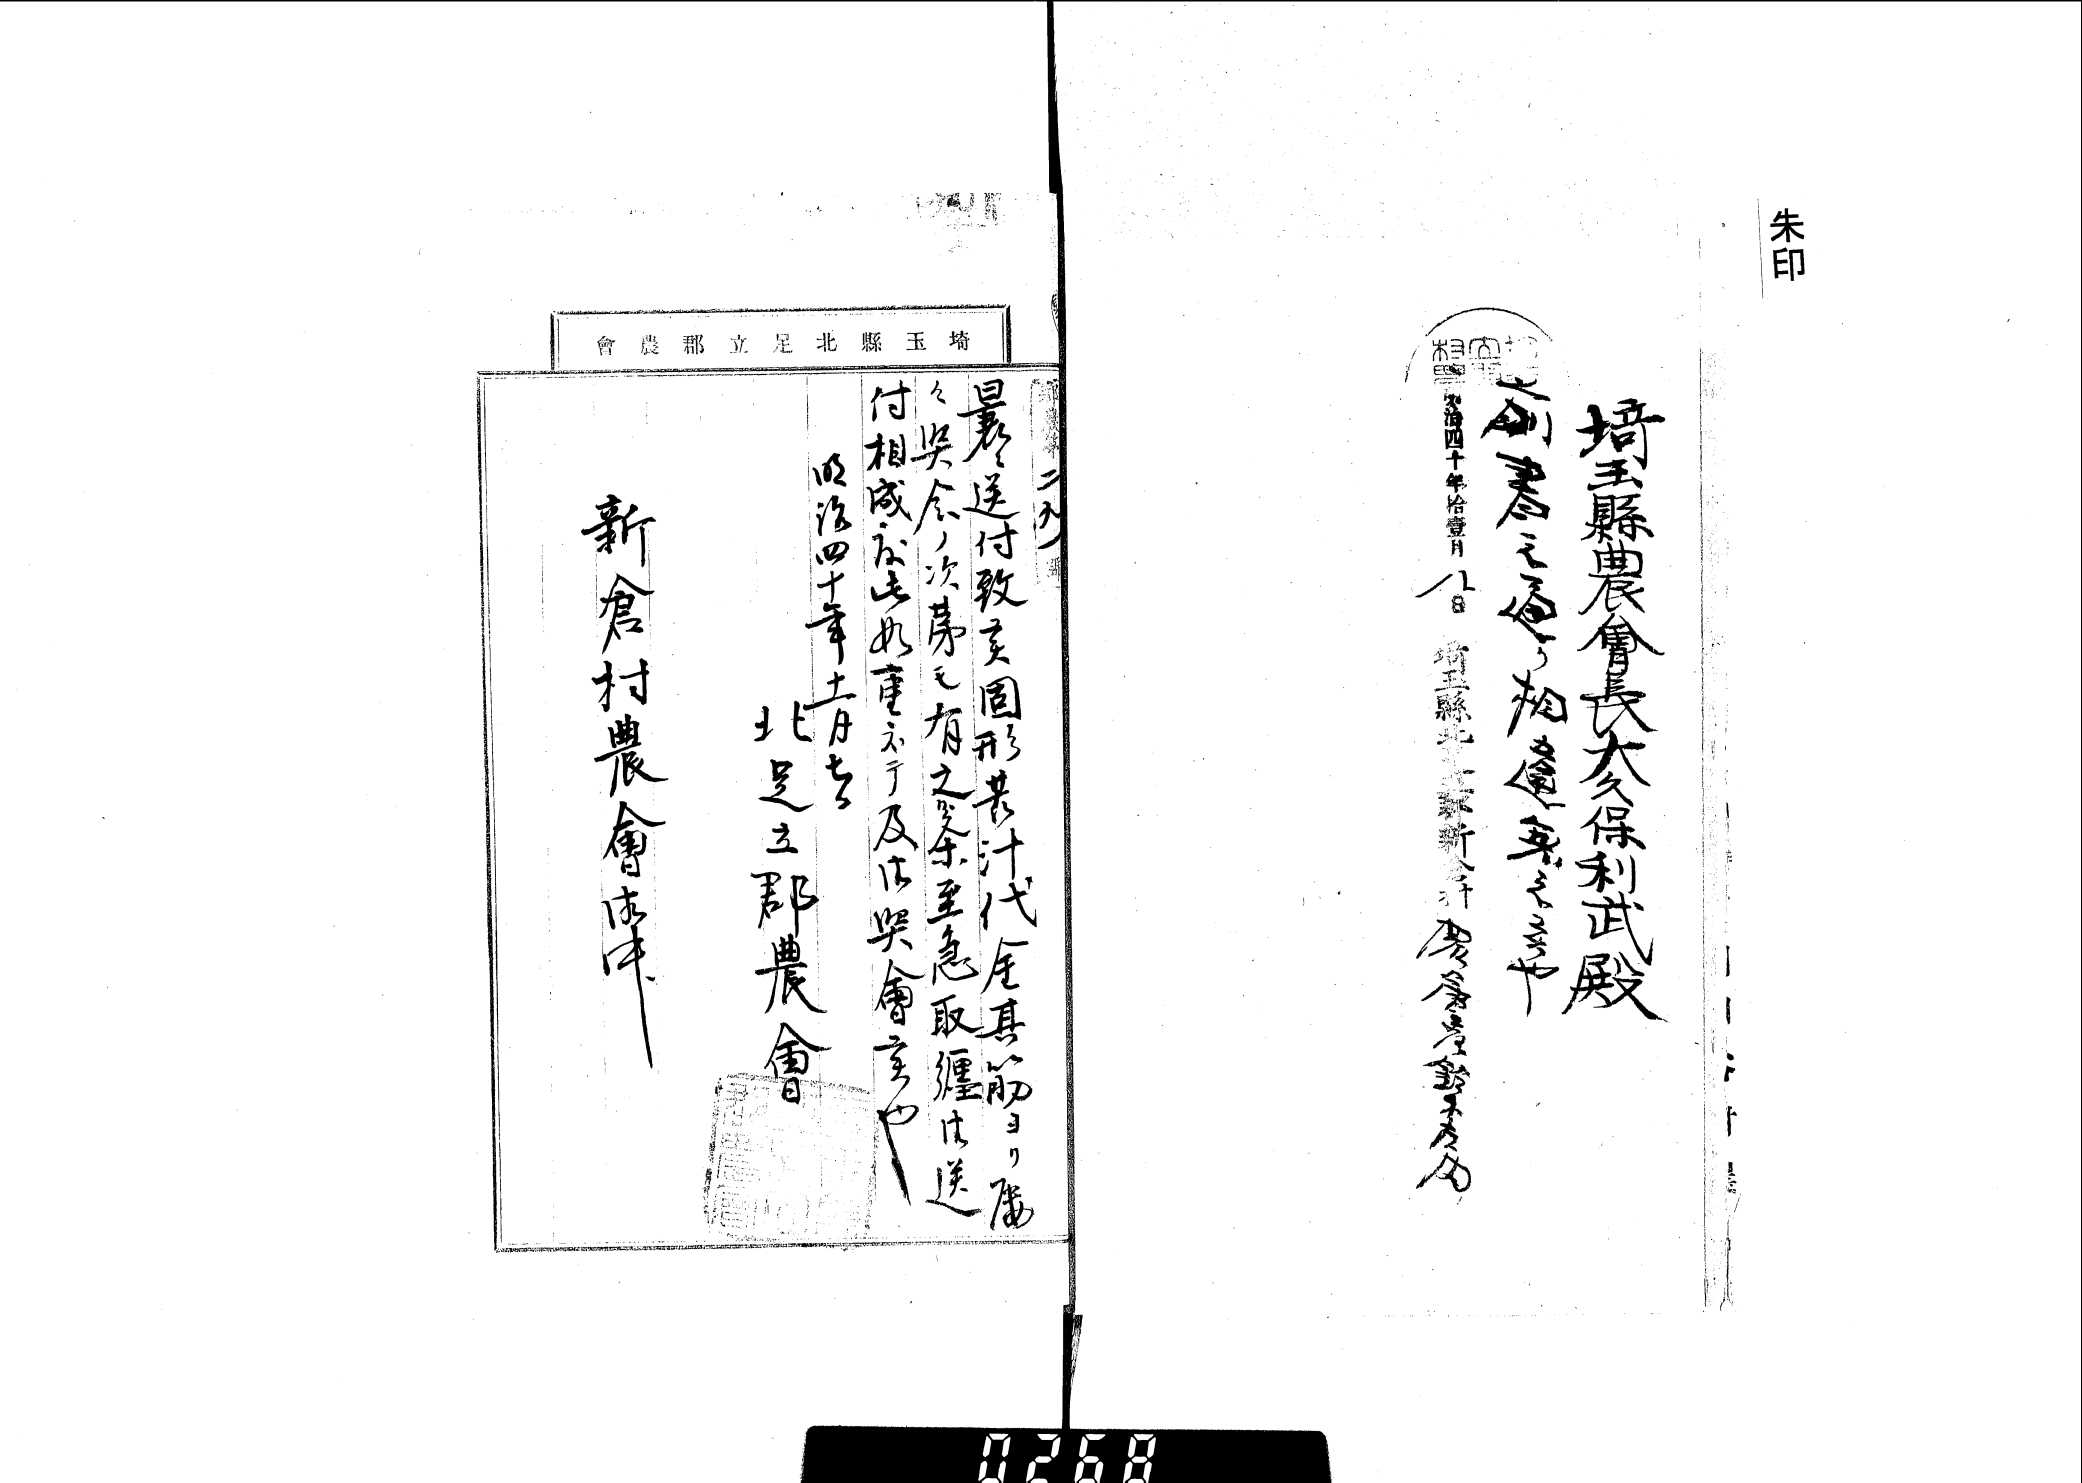 朱印
埼玉縣農會長大久保利武殿
前書之通り相違無之候也
明治四十年拾壹月八日 埼玉縣北足立郡新倉村
埼玉縣北足立郡農會
曩ニ送付致候固形苔汁代金其筋ヨリ屡
々照会ノ次第モ有之候条至急取纒御送
付相成度此如重ネテ及御照會候也
明治四十年十一月七日
北足立郡農會
新倉村農會御中
0268